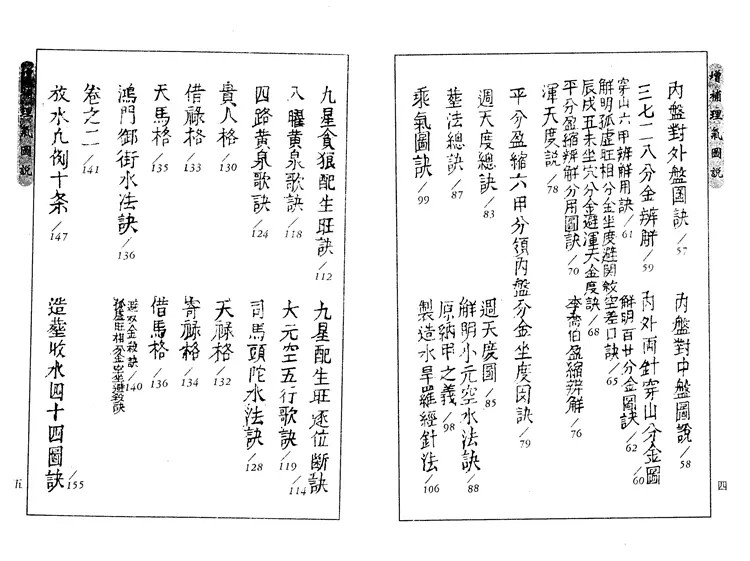 增補理氣圖說
內盤對外盤圖訣/57
內盤對中盤圖說/58
三七二八分金辨胼/59
內外兩針穿山分金圖/60
穿山六甲辨解用訣/61
解明百廿分金圖訣/62
解明孤虛旺相分金坐度避関殺空差口訣/65
辰戌丑未坐穴分金避渾天金度訣/68
平分盈縮辨解分用圖訣/70
李喬伯盈縮辨解/76
渾天度說/78
平分盈縮六甲分領內盤分金坐度図訣/79
週天度總訣/83
週天度圖/85
塟法總訣/87
解明小元空水法訣/88
原納甲之義/98
乘氣圖訣/99
製造水旱羅經針法/106
四
增補理氣圖說
九星貪狼配生旺訣/112
九星配生旺逐位斷訣/114
八曜黃泉歌訣/118
大元空五行歌訣/119
四路黃泉歌訣/124
司馬頭陀水法訣/128
貴人格/130
天祿格/132
借祿格/133
寄祿格/134
天馬格/135
借馬格/136
鴻門御街水法訣/136
孤虛旺相分金坐避殺訣
/140
卷之二/141
放水凡例十条/147
造塟收水四十四圖訣/155
五